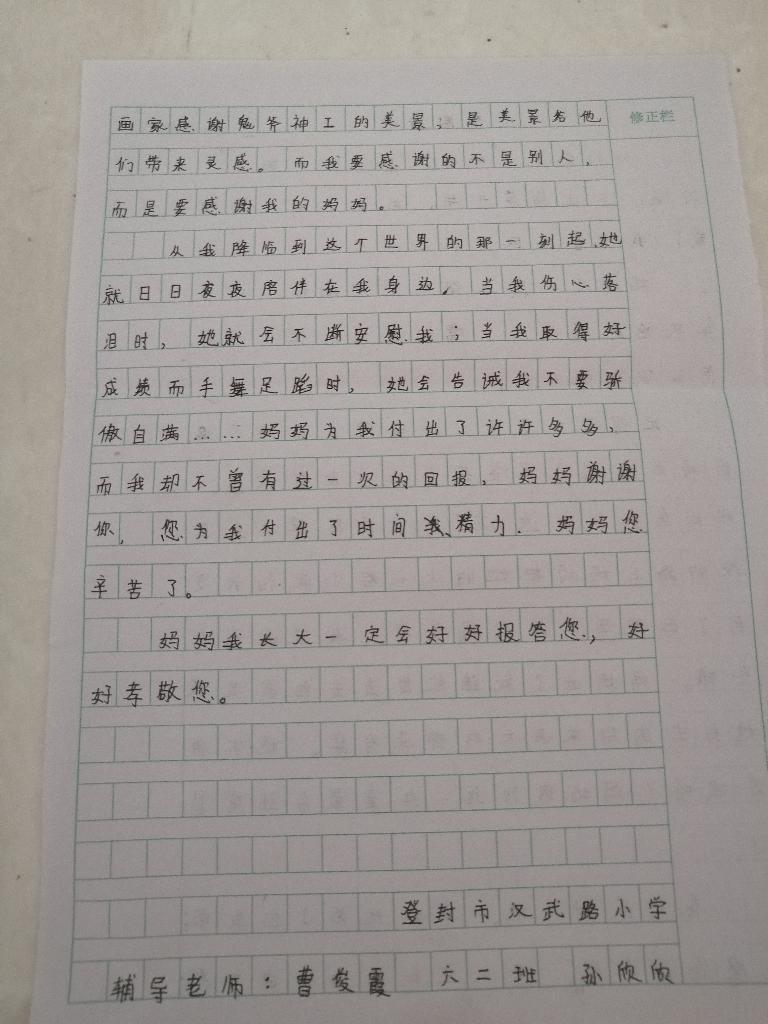 画家感谢鬼斧神工的美景；是美景给他
修正栏
们带来灵感。而我要感谢的不是别人，
而是要感谢我的妈妈。
从我降临到这个世界的那一刻起，她
就日日夜夜陪伴在我身边，当我伤心落
泪时，她就会不断安慰我；当我取得好
成绩而手舞足蹈时，她会告诫我不要骄
傲自满……妈妈为我付出了许许多多，
而我却不曾有过一次的回报，妈妈谢谢
你，您为我付出了时间、精力．妈妈您
辛苦了。
妈妈我长大一定会好好报答您，好
好孝敬您。
登封市汉武路小学
辅导老师：曹俊霞 六二班 孙欣欣